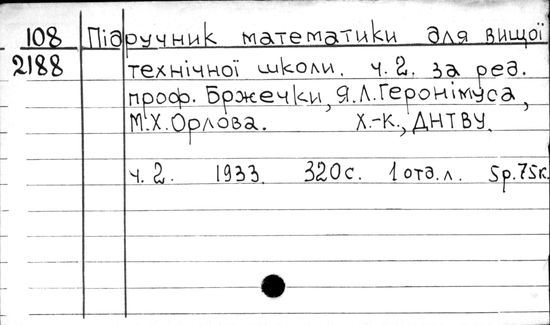 108 Підручник математики для вищої
2188 технічної школи. ч. 2. за ред.
проф. Бржечки, Я.Л.Геронімуса,
М.Х.Орлова. Х.-К., ДНТВУ.
ч. 2. 1933. 320с. 1 отд.л. 5р.75к.